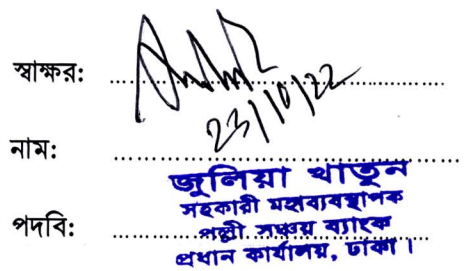 স্বাক্ষর:
23/10/22
নাম:
জুলিয়া খাতুন
সহকারী মহাব্যবস্থাপক
পদবি:
পল্লী সঞ্চয় ব্যাংক
প্রধান কার্যালয়, ঢাকা।